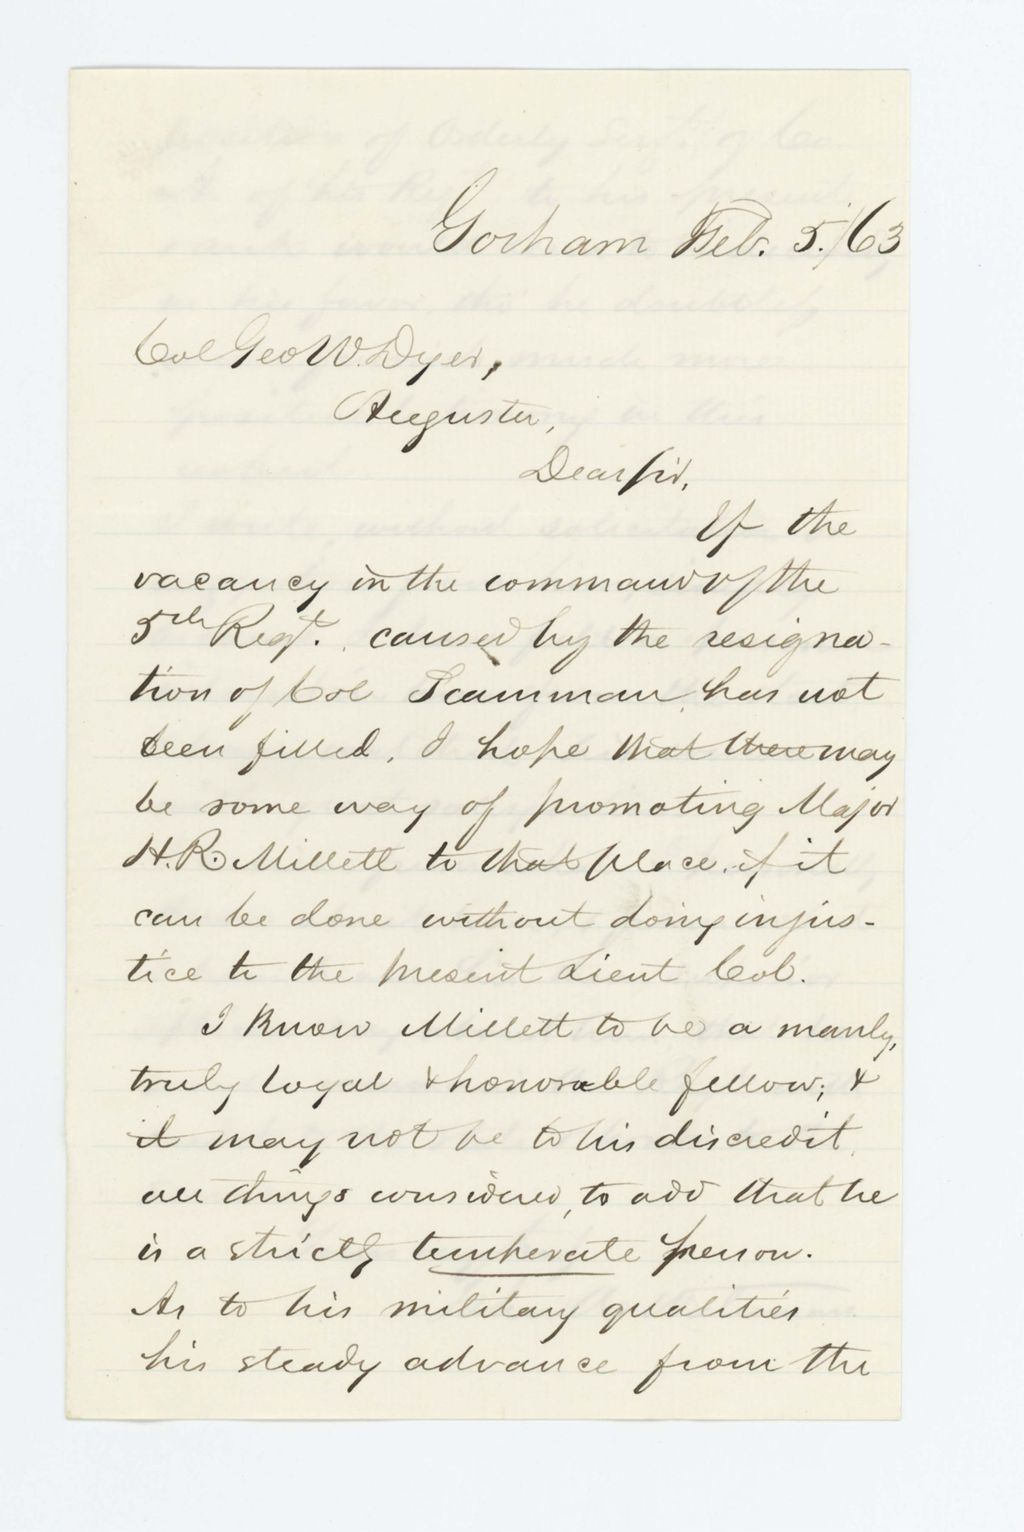 Gorham Feb. 5./63
Col Geo W. Dyer,
Augusta,
Dear Sir,
If the
vacancy in the command of the
5th Regt. caused by the resigna-
tion of Col Scamman, has not
been filled, I hope that there may
be some way of promoting Major
H. R. Millett to that place, if it
can be done without doing injus-
tice to the present Lieut Col.
I know Millett to be a manly,
truly loyal & honorable fellow; &
it may not be to his discredit,
all things considered, to add that he
is a strictly temperate person.
As to his military qualities
his steady advance from the